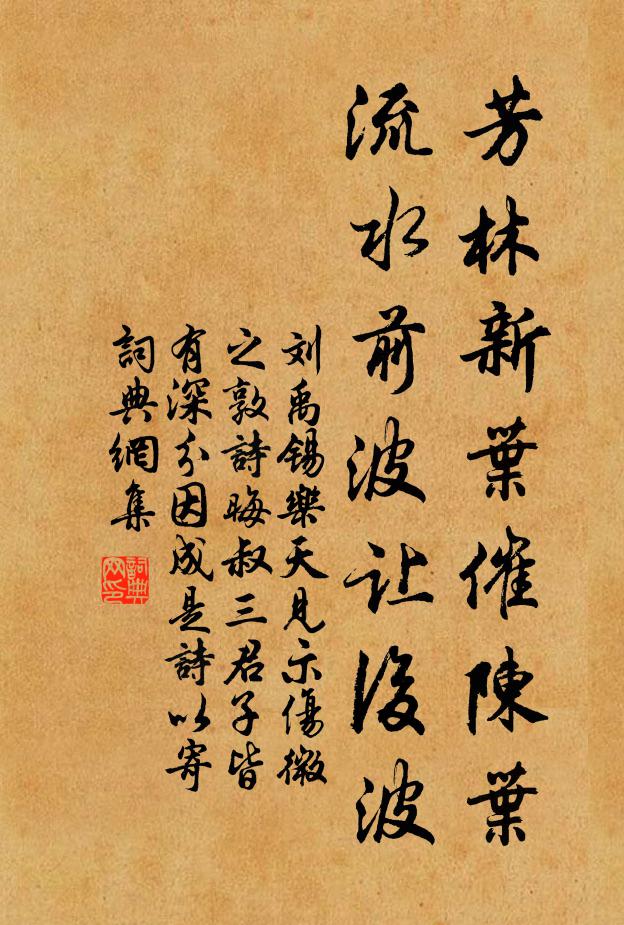 芳林新葉催陳葉
流水前波让後波
刘禹锡樂天見示傷微
之敦詩晦叔三君子皆
有深分因成是詩以寄
詞典網集
詞典网印